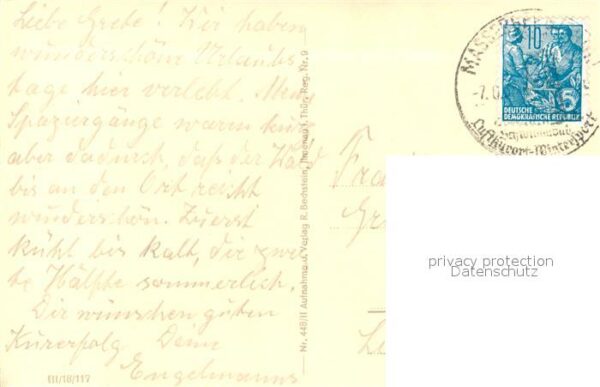 Liebe Grete! Wir haben
wunderschöne Urlaubs-
tage hier verlebt. Meine
Spaziergänge waren kurz
aber dadurch, daß der Wald
bis an den Ort reicht
wunderschön. Zuerst
kühl bis kalt, die zwei-
te Hälfte sommerlich.
Dir wünschen guten
Kurerfolg Deine
Engelmanns
III/18/117
Nr. 448/II Aufnahme u. Verlag R. Bechstein, Ilmenau i. Thür. Reg. Nr. 9
MASSERBERG
-7.
Luftkurort-Wintersport
10
5
DEUTSCHE
DEMOKRATISCHE REPUBLIK
Fra
Gr
privacy protection
Datenschutz